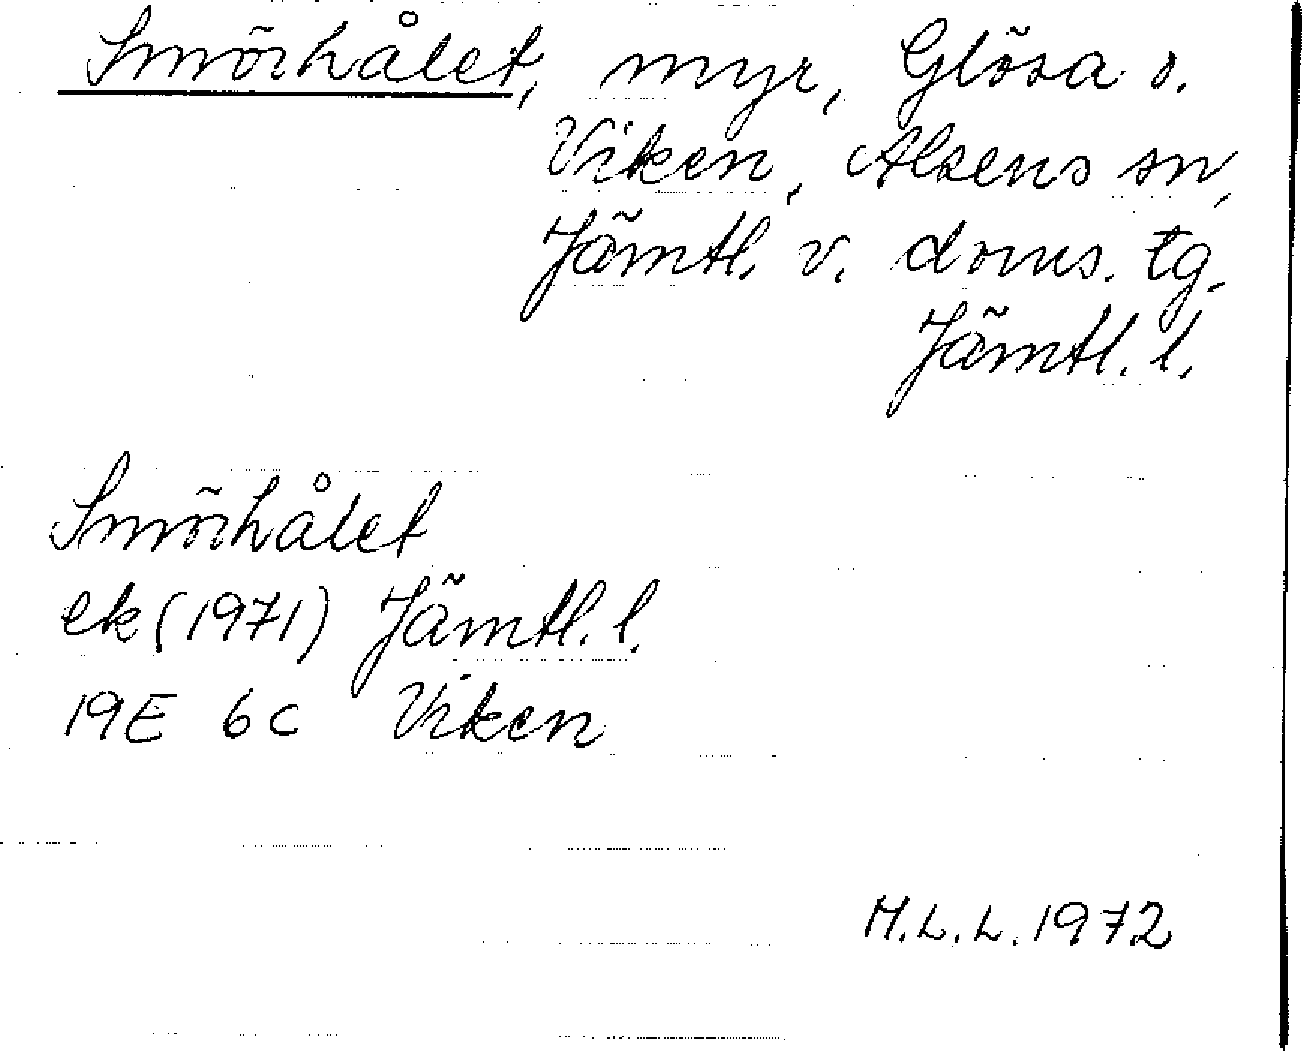 Smörhålet, myr, Glösa o.
Viken, Alsens sn,
Jämtl. v. doms. tg.
Jämtl. l.
Smörhålet
ek (1971) Jämtl. l.
19E 6c Viken
M.L.L. 1972